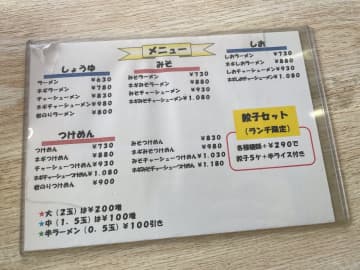 メニュー
しょうゆ
ラーメン ¥630
ネギラーメン ¥780
チャーシューメン ¥830
ネギチャーシューメン ¥980
岩のりラーメン ¥800
みそ
みそラーメン ¥730
ネギみそラーメン ¥880
みそチャーシューメン ¥930
ネギみそチャーシューメン ¥1.080
しお
しおラーメン ¥730
ネギしおラーメン ¥880
しおチャーシューメン ¥930
ネギしおチャーシューメン ¥1.080
つけめん
つけめん ¥730
ネギつけめん ¥880
チャーシューつけめん ¥930
ネギチャーシューつけめん ¥1.080
岩のりつけめん ¥900
みそつけめん ¥830
ネギみそつけめん ¥980
みそチャーシューつけめん ¥1.030
ネギみそチャーシューつけめん ¥1.180
餃子セット
(ランチ限定)
各種麺類+¥290で
餃子5ケ+半ライス付き
★大(2玉)は¥200増
★中(1.5玉)は¥100増
★半ラーメン(0.5玉)¥100引き